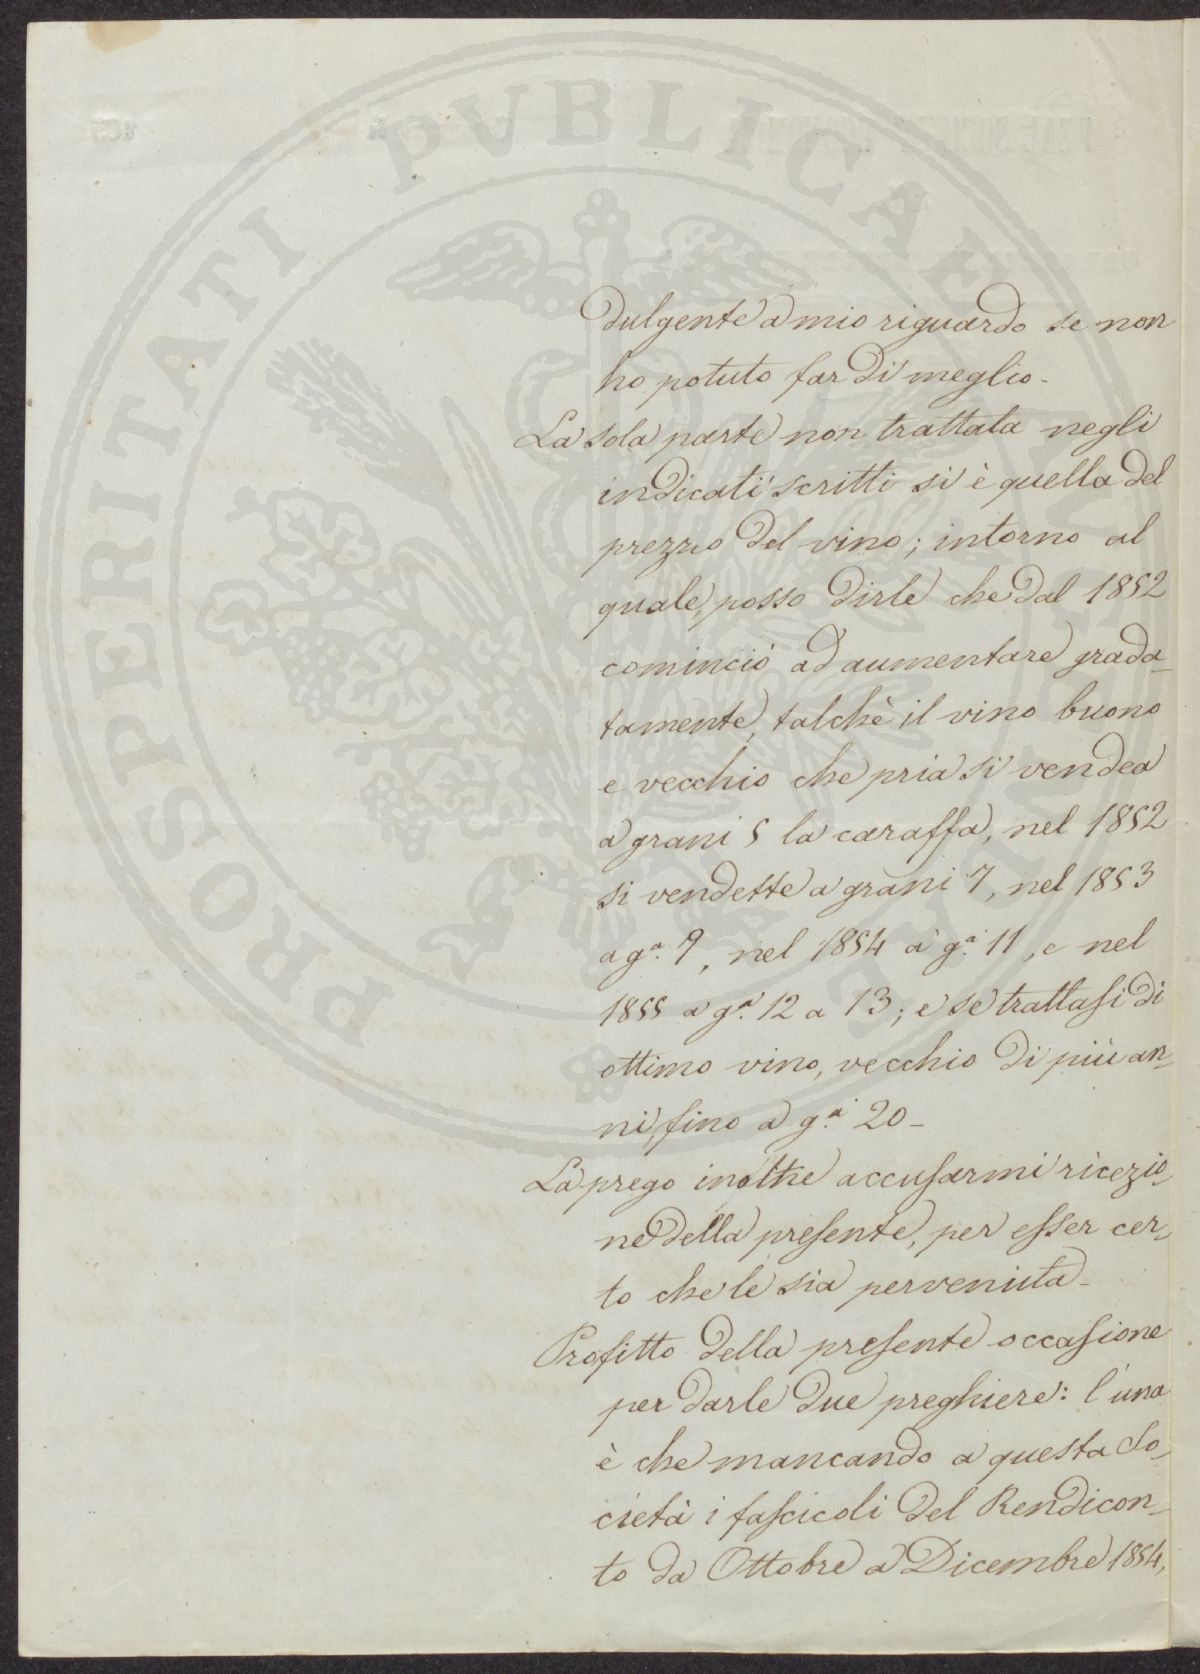 PROSPERITATI PVBLICAE AVGENDAE
dulgente a mio riguardo se non
ho potuto far di meglio -
La sola parte non trattata negli
indicati scritti si è quella del
prezzo del vino; intorno al
quale, posso dirle che dal 1852
cominciò ad aumentare grada-
tamente, talchè il vino buono
e vecchio che pria si vendea
a grani 5 la caraffa, nel 1852
si vendette a grani 7, nel 1853
a g.a 9, nel 1854 a g.a 11, e nel
1855 a g.a 12 a 13; e se trattasi di
ottimo vino, vecchio di più an-
ni, fino a g.a 20 -
La prego inoltre accusarmi ricezio-
ne della presente, per esser cer-
to che le sia pervenuta -
Profitto della presente occasione
per darle due preghiere: l'una
è che mancando a questa So-
cietà i fascicoli del Rendicon-
to da Ottobre a Dicembre 1854,